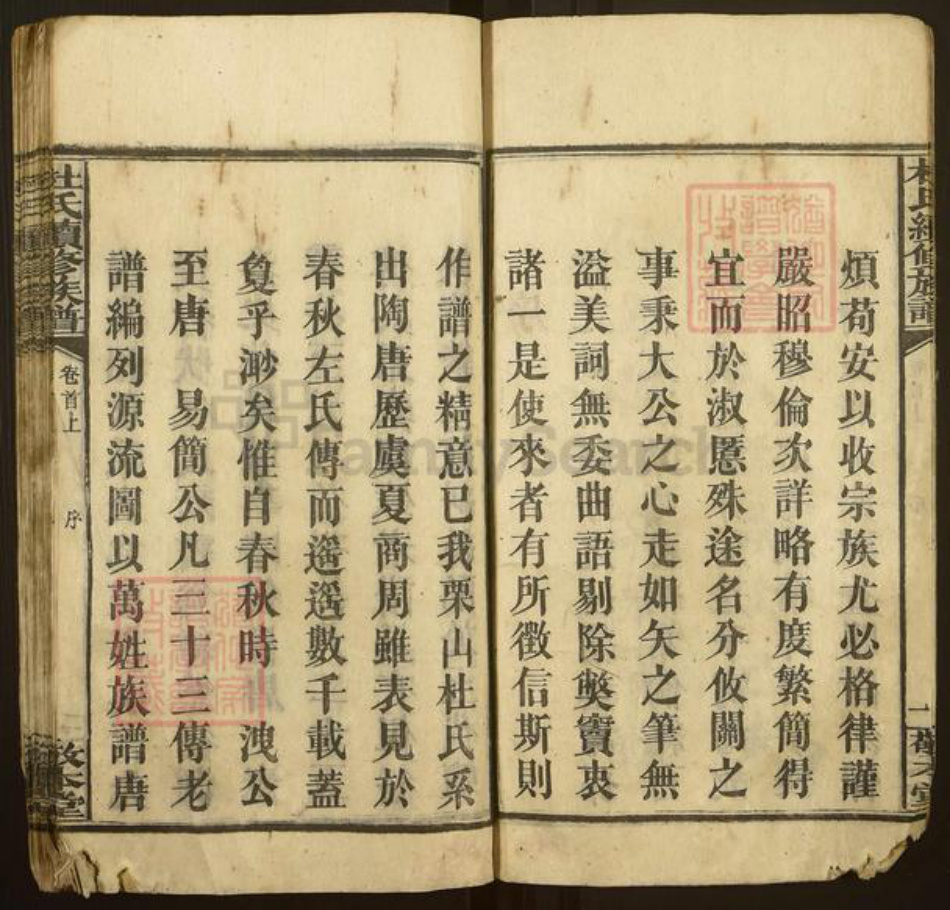 杜氏續修族譜
煩苟安以收宗族尤必格律謹
嚴昭穆倫次詳略有度繁簡得
宜而於淑慝殊途名分攸關之
事秉大公之心走如矢之筆無
溢美詞無委曲語剔除獘竇衷
諸一是使來者有所徵信斯則
作譜之精意已我栗山杜氏系
出陶唐歷虞夏商周雖表見於
春秋左氏傳而遥遥數千載蓋
敻乎渺矣惟自春秋時 洩公
至唐 易簡公凡三十三傳老
譜編列源流圖以萬姓族譜唐
杜氏續修族譜
卷首上
序
敦本堂
FamilySearch